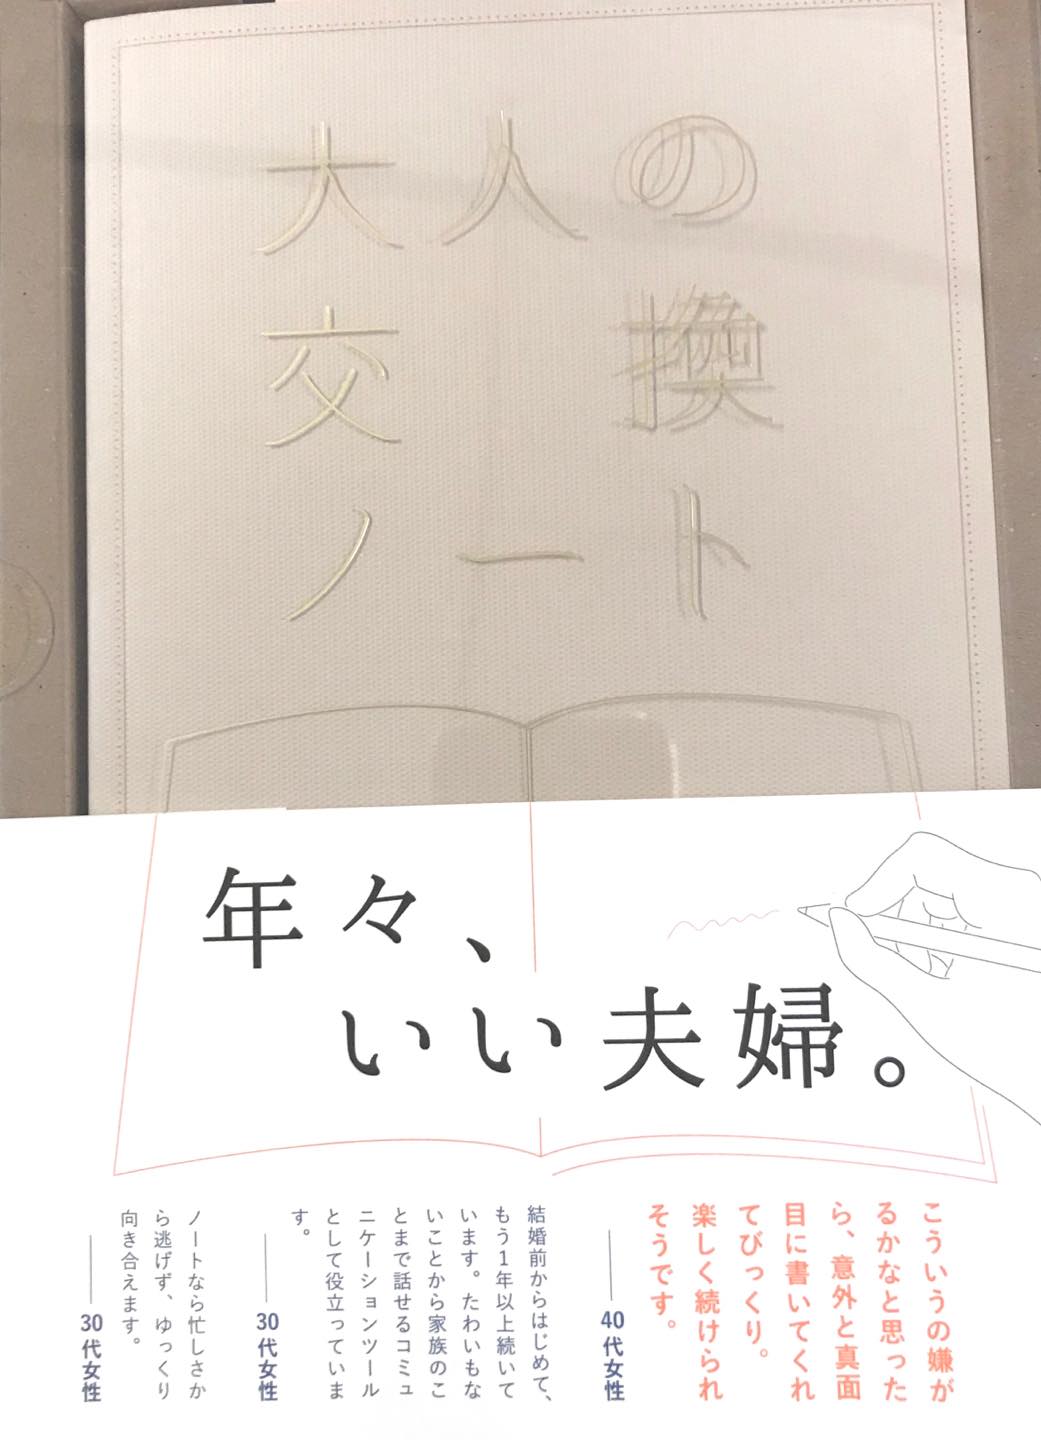 大人の
交換
ノート
年々、
いい夫婦。
こういうの嫌が
るかなと思った
ら、意外と真面
目に書いてくれ
てびっくり。
楽しく続けられ
そうです。
40代女性
結婚前からはじめて、
もう1年以上続いて
います。たわいもな
いことから家族のこ
とまで話せるコミュ
ニケーションツール
として役立っていま
す。
30代女性
ノートなら忙しさか
ら逃げず、ゆっくり
向き合えます。
30代女性